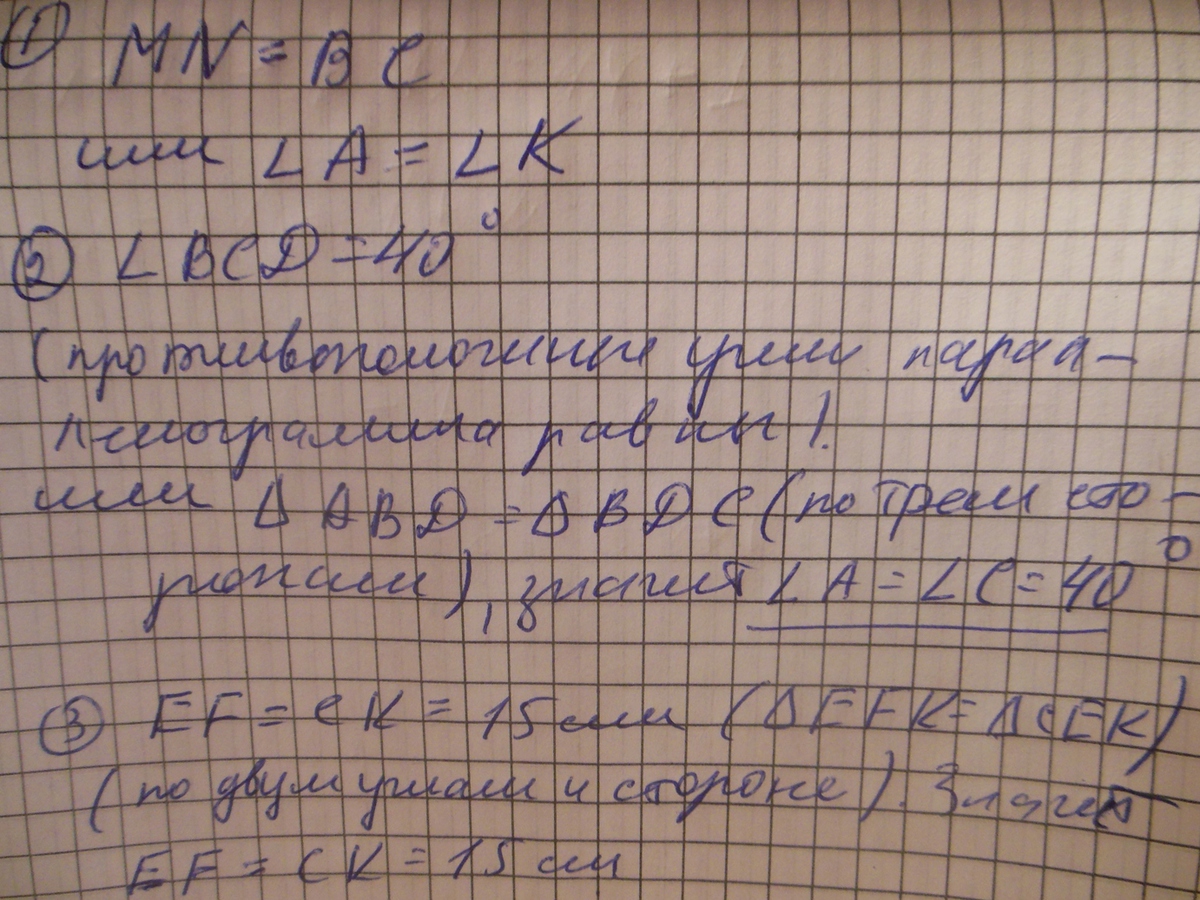 ① MN = BC
или ∠A = ∠K
② ∠BCD = 40°
(противоположные углы парал-
лелограмма равны).
или Δ ABD = Δ BDC (по трем сто-
ронам), значит ∠A = ∠C = 40°
③ EF = CK = 15 см (Δ EFK = Δ CEK)
(по двум углам и стороне). Значит
EF = CK = 15 см